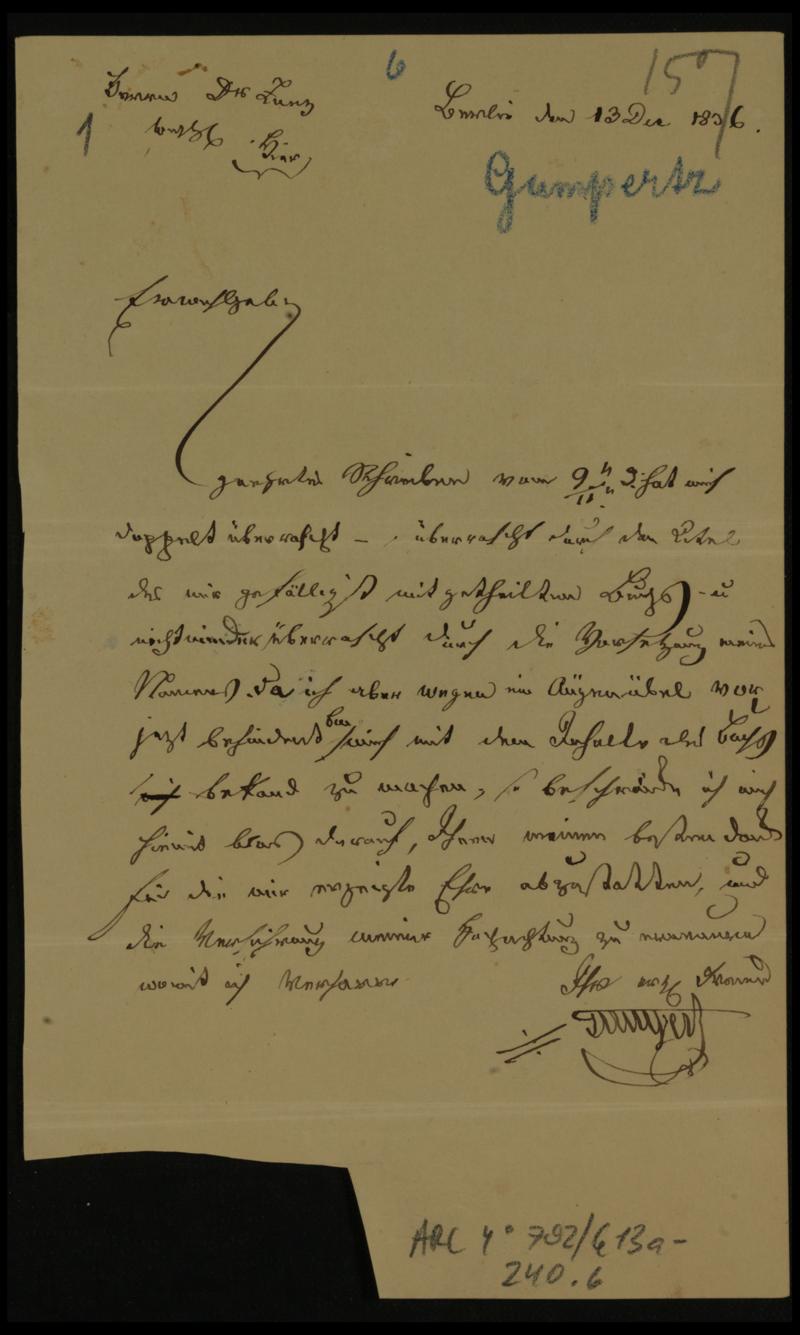 6
159
Herrn Dr Zunz
Berlin den 13 Dec 1836.
1
Hier
Gumpertz
Ew wohlgeb.
geehrtes Schreiben vom 9 d. hat mich
doppelt überrascht – überrascht durch den Titel
des mir gefälligst mitgetheilten Buchs – u
nicht minder überrascht durch die Vorsetzung meines
Namens. Da ich aber wegen ein Augenübel vor
jetzt behindert bin mich mit dem Inhalte des Buchs
bekand zu machen, so beschränke ich mich
hiemit blos darauf, Ihnen meinen besten Dank
für die mir erzeigte Ehre abzustatten, und
die Versicherung meiner Hochachtung zu erneuern
womit ich verharre
Ihr Freund
Gumpertz
ARC 4° 792/G13a-
240.6